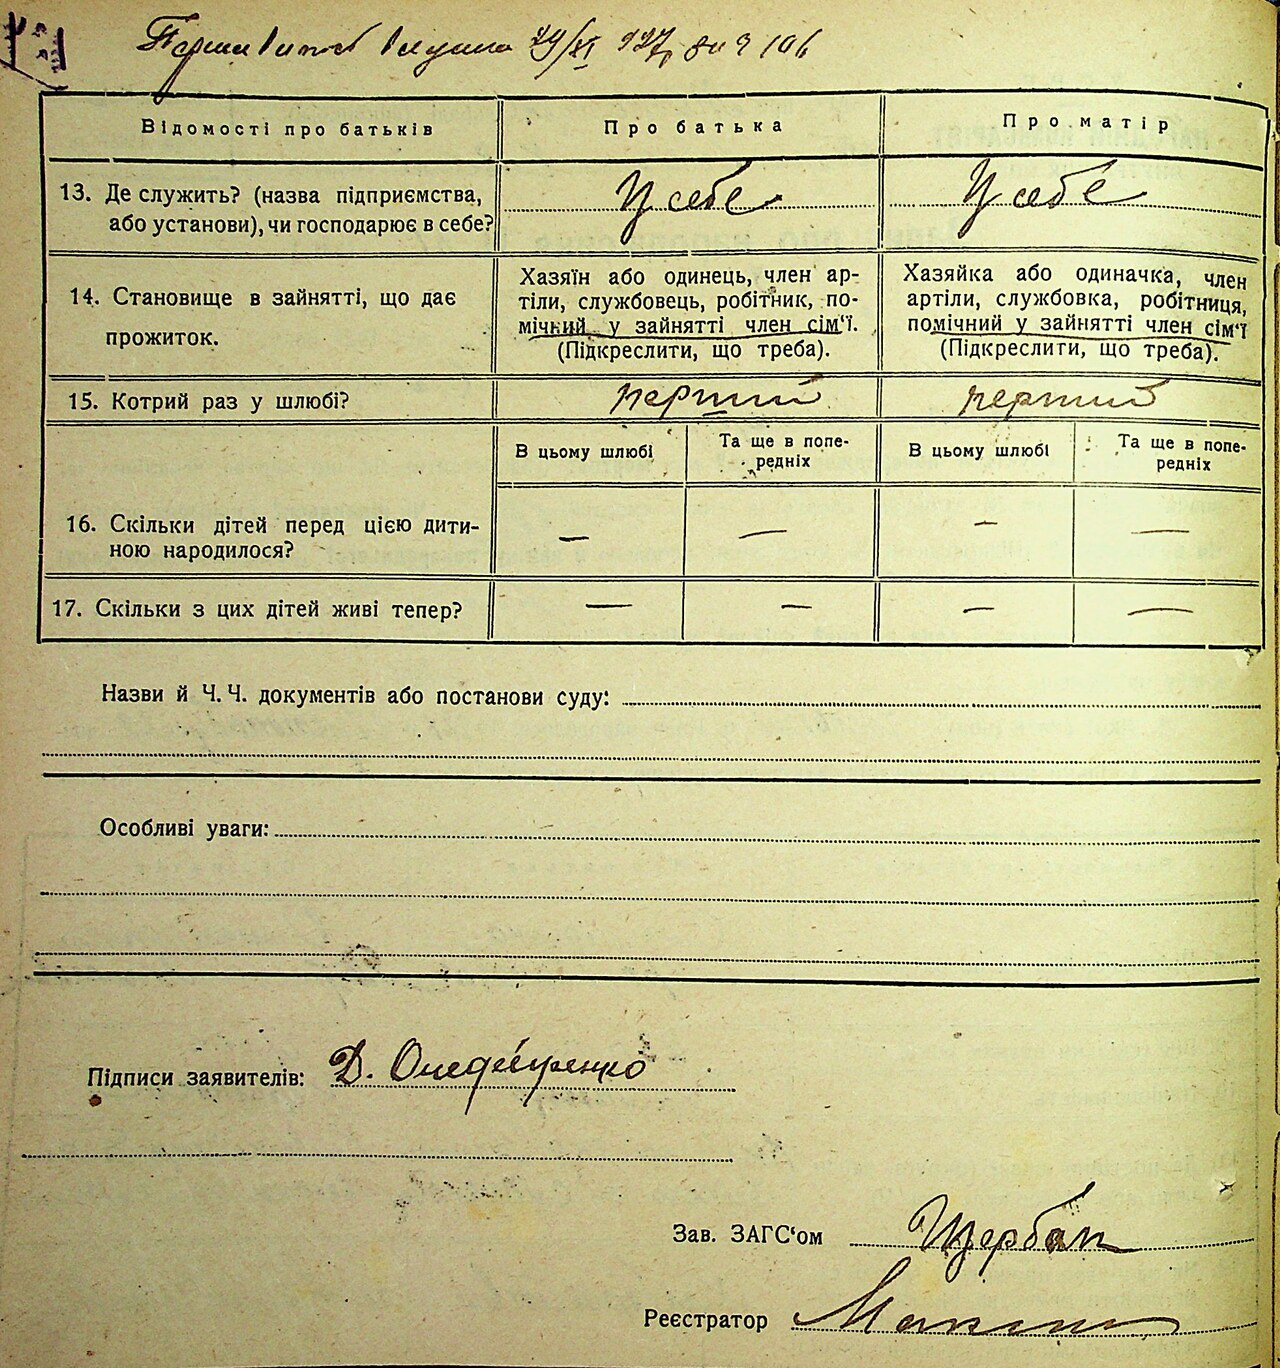 29/XI 927р. за № 106
Відомості про батьків
Про батька
Про матір
13. Де служить? (назва підприємства,
або установи), чи господарює в себе?
У себе
У себе
14. Становище в зайнятті, що дає
прожиток.
Хазяїн або одинець, член ар-
тіли, службовець, робітник, по-
мічний у зайнятті член сім'ї.
(Підкреслити, що треба).
Хазяйка або одиначка, член
артіли, службовка, робітниця,
помічний у зайнятті член сім'ї
(Підкреслити, що треба).
15. Котрий раз у шлюбі?
перший
перший
В цьому шлюбі
Та ще в попе-
редніх
В цьому шлюбі
Та ще в попе-
редніх
16. Скільки дітей перед цією дити-
ною народилося?
— — — —
17. Скільки з цих дітей живі тепер?
— — — —
Назви й Ч. Ч. документів або постанови суду:
Особливі уваги:
Підписи заявителів: Д.
Зав. ЗАГС'ом Щербак
Реєстратор